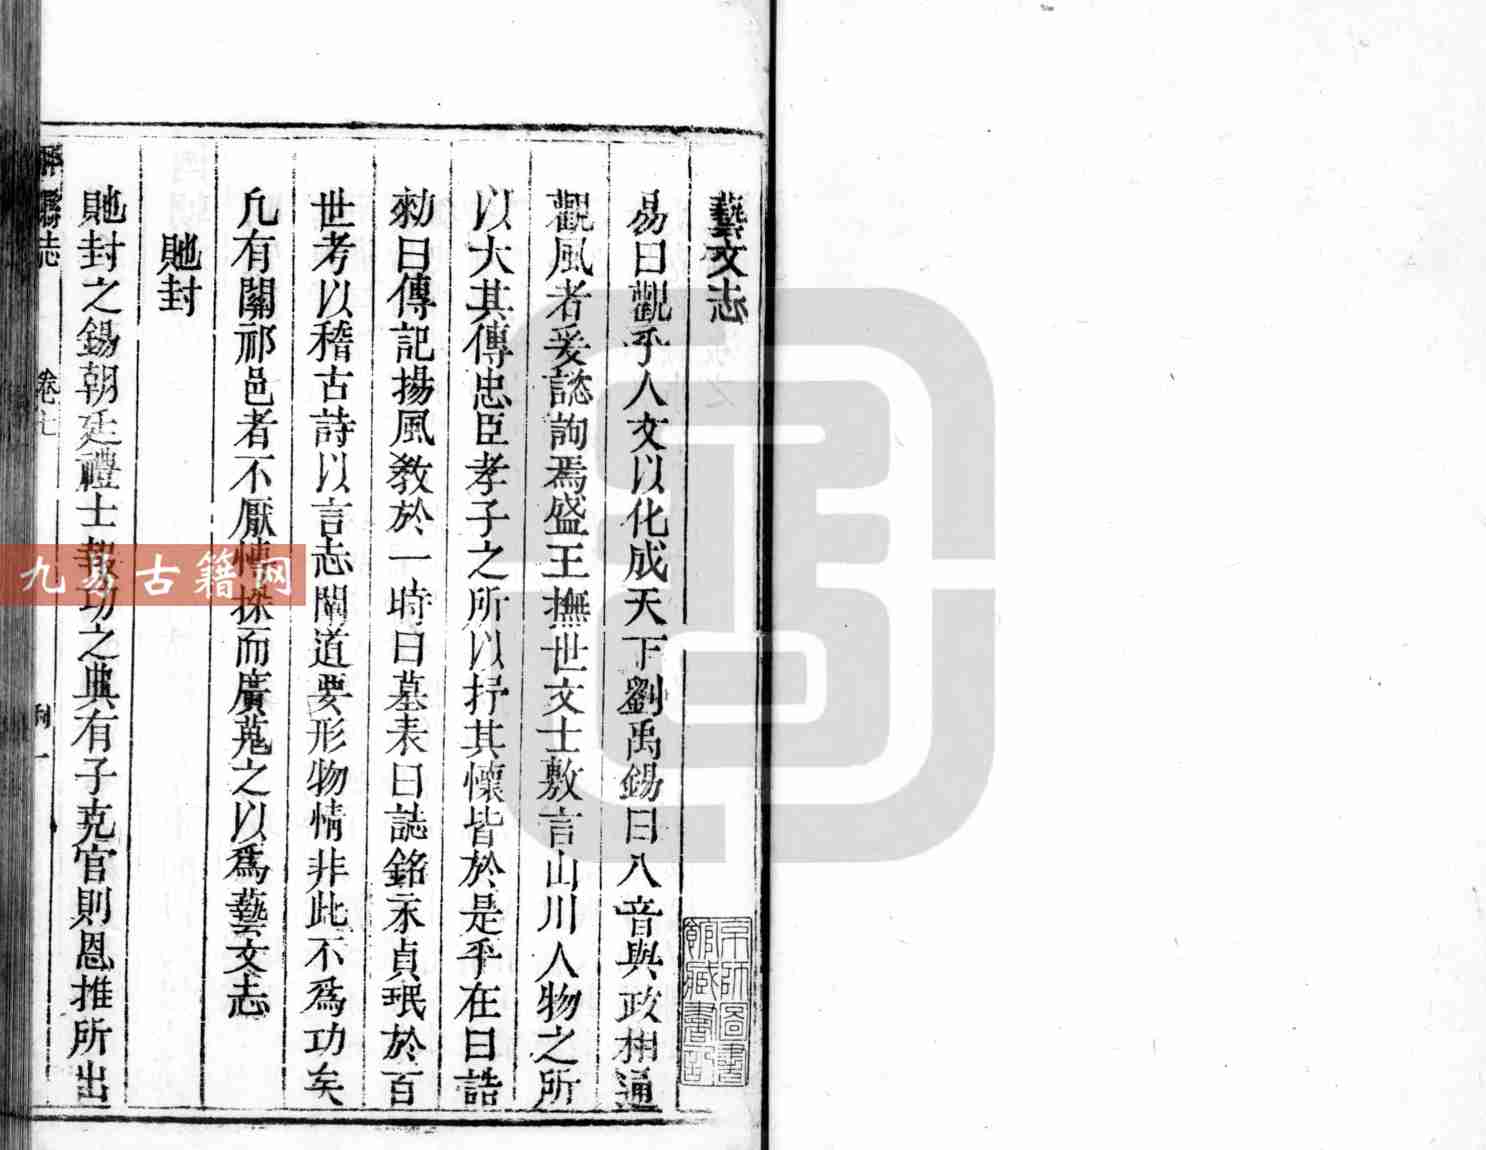 藝文志
易曰觀乎人文以化成天下劉禹錫曰八音與政相通
觀風者爰諮詢焉盛王撫世文士敷言山川人物之所
以大其傳忠臣孝子之所以抒其懷皆於是乎在曰誥
勑曰傳記揚風教於一時曰墓表曰誌銘永貞珉於百
世考以稽古詩以言志闡道要形物情非此不爲功矣
凢有關祁邑者不厭博採而廣蒐之以爲藝文志
貤封
貤封之錫朝廷禮士報功之典有子克官則恩推所出
志
卷七
一
京師圖書
館藏書印
九易古籍网